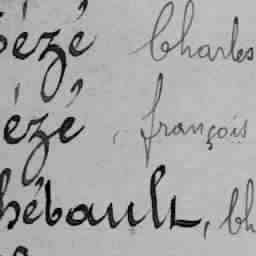 ézé Charles
ézé, françois
hébault, Ch